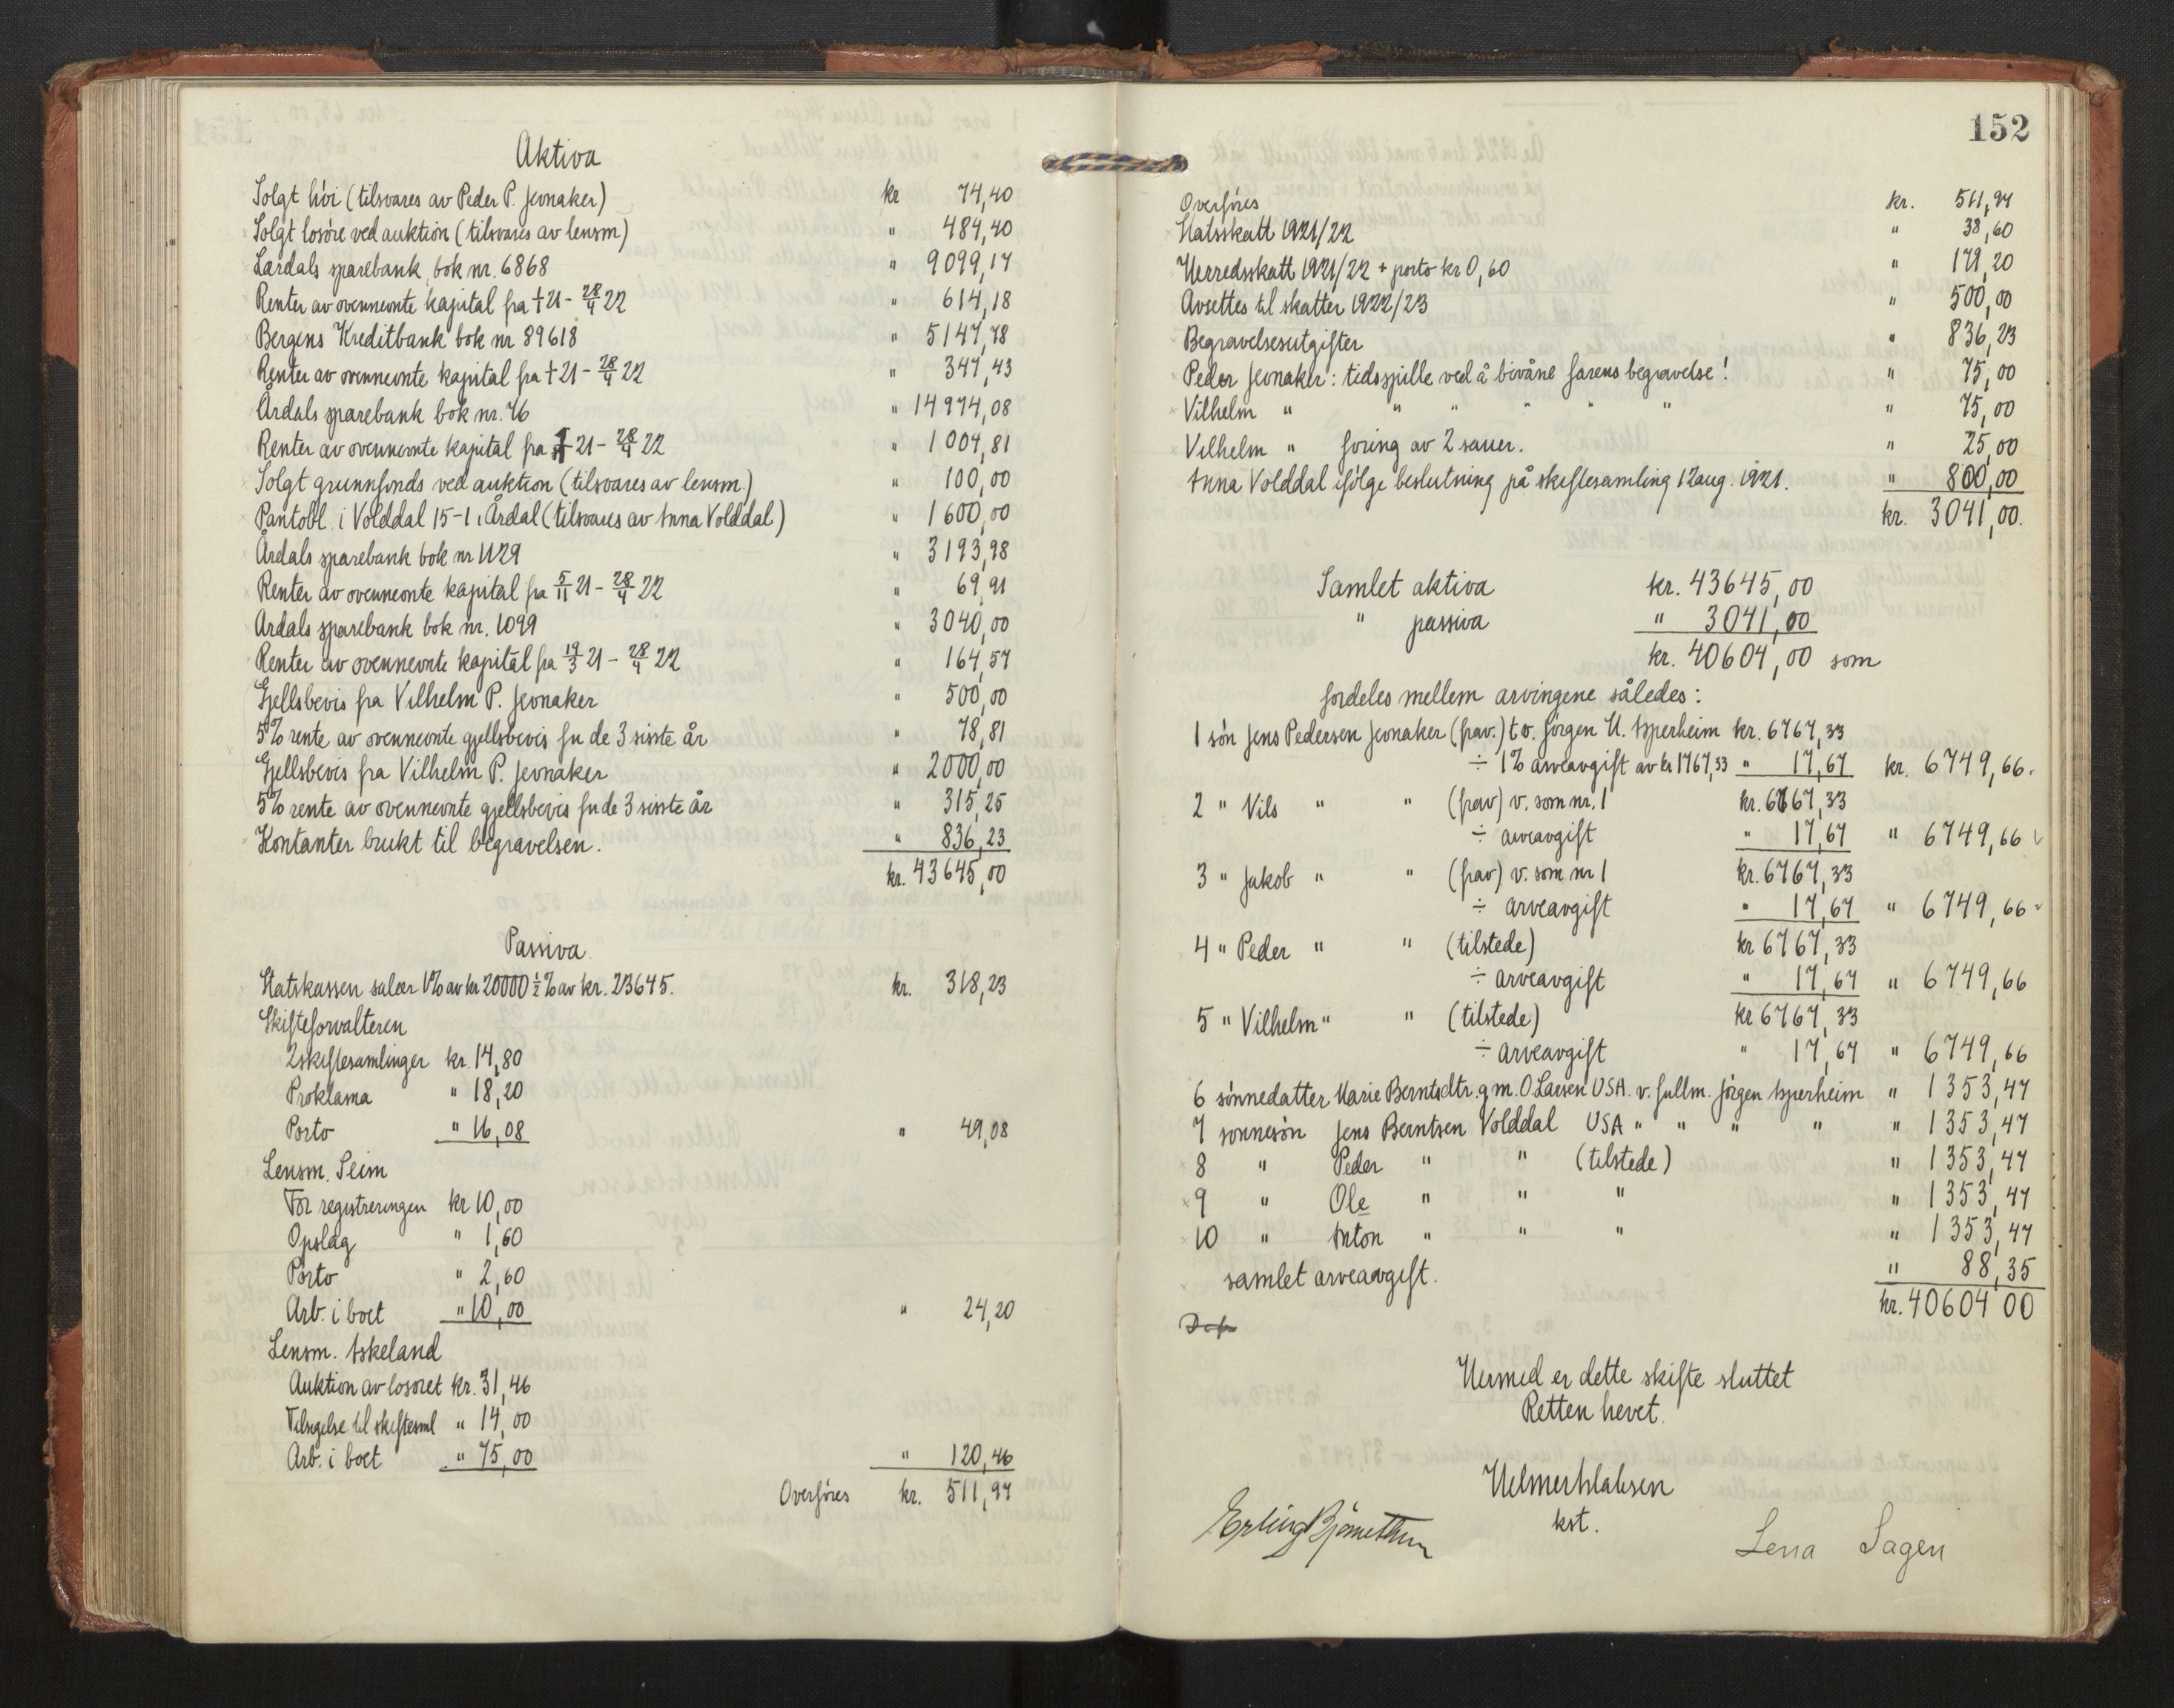 Aktiva
Solgt höi (tilsvares av Peder P. Jevnaker) kr 74,40
Solgt losöre ved auktion (tilsvares av lensm) " 484,40
Lærdals sparebank bok nr. 6868 " 9099,17
Renter av ovennevnte kapital fra 1/1 21 - 28/4 22 " 614,18
Bergens Kreditbank bok nr 89618 " 5147,78
Renter av ovennevnte kapital fra 1/1 21 - 28/4 22 " 347,43
Årdals sparebank bok nr. 76 " 14974,08
Renter av ovennevnte kapital fra 1/1 21 - 28/4 22 " 1004,81
Solgt grunnfonds ved auktion (tilsvares av lensm.) " 100,00
Pantobl. i Volddal 15-1 i Årdal (tilsvares av Anna Volddal) " 1600,00
Årdals sparebank bok nr 1129 " 3193,98
Renter av ovennevnte kapital fra 5/11 21 - 28/4 22 " 69,91
Årdals sparebank bok nr. 1099 " 3040,00
Renter av ovennevnte kapital fra 19/3 21 - 28/4 22 " 164,57
Gjellsbevis fra Vilhelm P. Jevnaker " 500,00
5% rente av ovennevnte gjellsbevis fu de 3 siste år " 78,81
Gjellsbevis fra Vilhelm P. Jevnaker " 2000,00
5% rente av ovennevnte gjellsbevis fu de 3 siste år " 315,25
Kontanter brukt til begravelsen. " 836,23
kr. 43645,00
Passiva
Statskassen salær 1% av kr 20000 1/2% av kr. 23645. kr. 318,23
Skifteforvalteren
2 skiftesamlinger kr. 14,80
Proklama " 18,20
Porto " 16,08 " 49,08
Lensm. Seim
For registreringen kr 10,00
Opslag " 1,60
Porto " 2,60
Arb. i boet " 10,00 " 24,20
Lensm. Askeland
Auktion av losöret kr. 31,46
Tilsigelse til skiftesml " 14,00
Arb. i boet " 75,00 " 120,46
Overföres kr. 511,97
152
Overföres kr. 511,97
Statsskatt 1921/22 " 38,60
Herredsskatt 1921/22 + porto kr 0,60 " 179,20
Avsettes til skatter 1922/23 " 500,00
Begravelsesutgifter " 836,23
Peder Jevnaker: tidsspille ved å bivåne farens begravelse! " 75,00
Vilhelm " " " " " " " 75,00
Vilhelm " foring av 2 sauer. " 25,00
Anna Volddal ifölge beslutning på skiftesamling 12 aug. 1921. " 800,00
kr. 3041,00.
Samlet aktiva kr. 43645,00
" passiva " 3041,00
kr. 40604,00 som
fordeles mellem arvingene således:
1 sön Jens Pedersen Jevnaker (frav.) t.v. Jörgen H. Asperheim kr. 6767,33
÷ 1% arveavgift av kr 1767,33 " 17,67 kr. 6749,66.
2 " Nils " " (frav) v. som nr. 1 kr. 6767,33
÷ arveavgift " 17,67 " 6749,66
3 " Jakob " " (frav) v. som nr 1 kr. 6767,33
÷ arveavgift " 17,67 " 6749,66
4 " Peder " " (tilstede) kr 6767,33
÷ arveavgift " 17,67 " 6749,66
5 " Vilhelm " " (tilstede) kr 6767,33
÷ arveavgift " 17,67 " 6749,66
6 sönnedatter Marie Berntsdtr. g.m. O. Larsen USA. v. fullm. Jörgen Asperheim " 1353,47
7 sonnesön Jens Berntsen Volddal USA " " " " " 1353,47
8 " Peder " " (tilstede) " 1353,47
9 " Ole " " " " 1353,47
10 " Anton " " " " 1353,47
samlet arveavgift. " 88,35
kr. 40604 00
Hermed er dette skifte sluttet
Retten hevet.
kst.
Lena Sagen